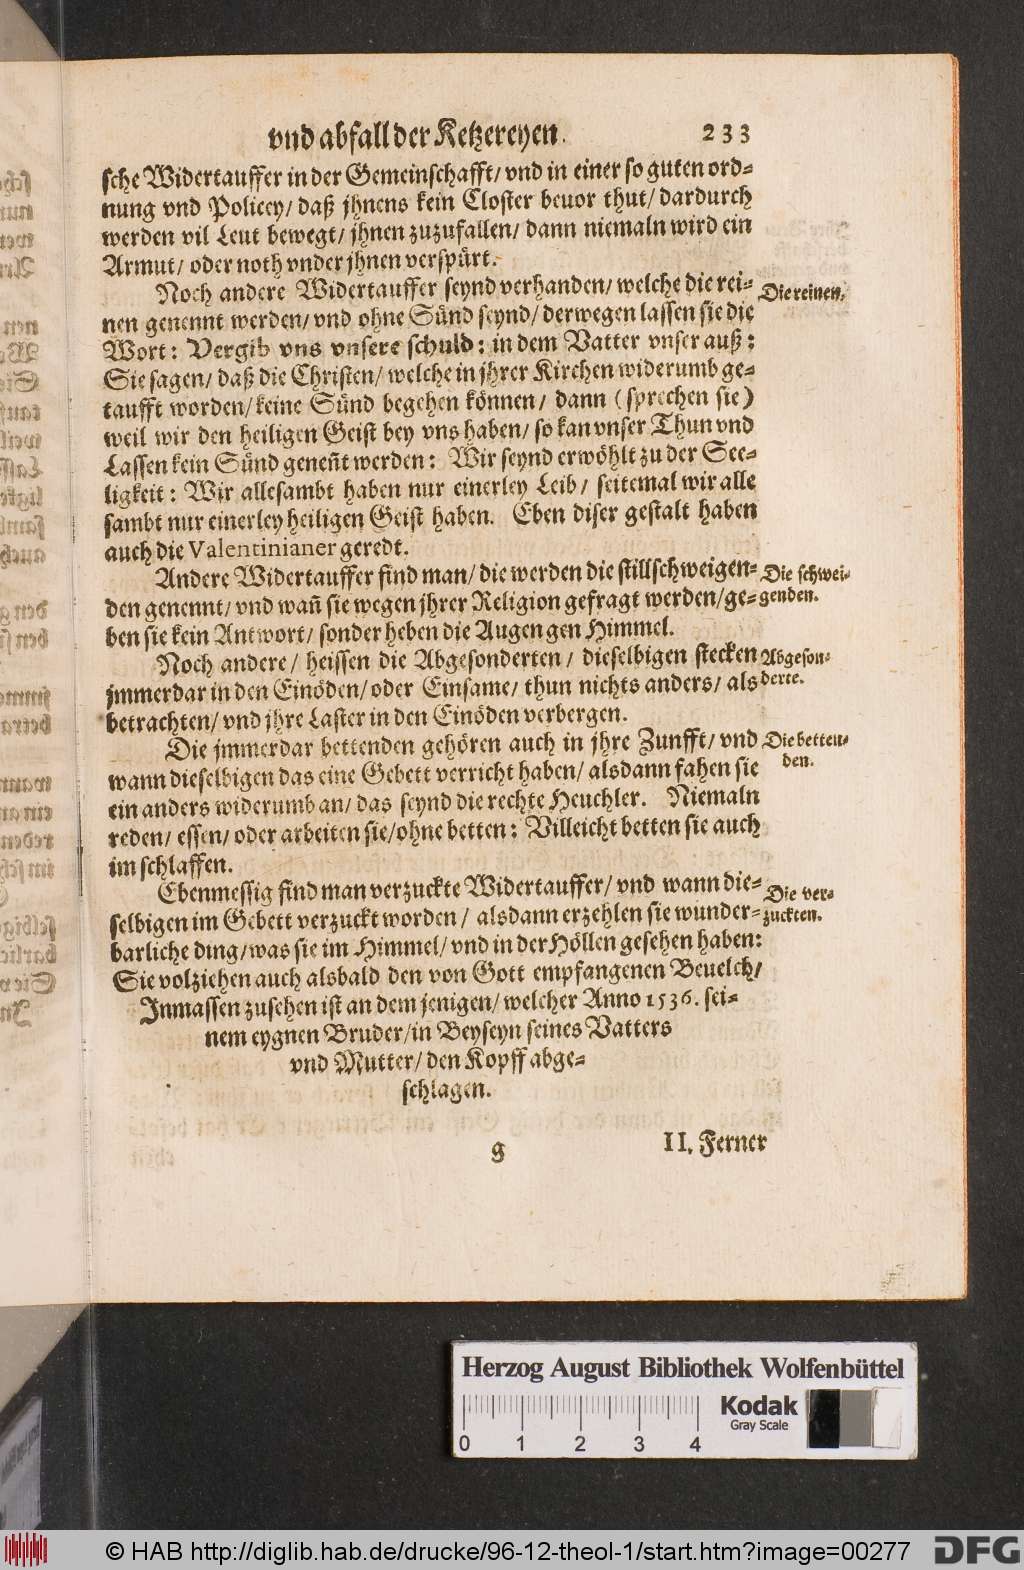 vnd abfall der Ketzereyen. 233
sche Widertauffer in der Gemeinschafft/ vnd in einer so guten ord-
nung vnd Policey/ daß jhnens kein Closter beuor thut/ dardurch
werden vil Leut bewegt/ jhnen zuzufallen/ dann niemaln wird ein
Armut/ oder noth vnder jhnen verspürt.
Noch andere Widertauffer seynd verhanden/ welche die rei-
Die reinen.
nen genennt werden/ vnd ohne Sünd seynd/ derwegen lassen sie die
Wort: Vergib vns vnsere schuld: in dem Vatter vnser auß:
Sie sagen/ daß die Christen/ welche in jhrer Kirchen widerumb ge-
taufft worden/ keine Sünd begehen können/ dann (sprechen sie)
weil wir den heiligen Geist bey vns haben/ so kan vnser Thun vnd
Lassen kein Sünd geneñt werden: Wir seynd erwöhlt zu der See-
ligkeit: Wir allesambt haben nur einerley Leib/ seitemal wir alle
sambt nur einerley heiligen Geist haben. Eben diser gestalt haben
auch die Valentinianer geredt.
Andere Widertauffer find man/ die werden die stillschweigen-
Die schwei-
den genennt/ vnd wañ sie wegen jhrer Religion gefragt werden/ ge-
genden.
ben sie kein Antwort/ sonder heben die Augen gen Himmel.
Noch andere/ heissen die Abgesonderten/ dieselbigen stecken
Abgeson-
jmmerdar in den Einöden/ oder Einsame/ thun nichts anders/ als
derte.
betrachten/ vnd jhre Laster in den Einöden verbergen.
Die jmmerdar bettenden gehören auch in jhre Zunfft/ vnd
Die betten-
wann dieselbigen das eine Gebett verricht haben/ alsdann fahen sie
den.
ein anders widerumb an/ das seynd die rechte Heuchler. Niemaln
reden/ essen/ oder arbeiten sie/ ohne betten: Villeicht betten sie auch
im schlaffen.
Ebenmessig find man verzuckte Widertauffer/ vnd wann die-
Die ver-
selbigen im Gebett verzuckt worden/ alsdann erzehlen sie wunder-
zuckten.
barliche ding/ was sie im Himmel/ vnd in der Höllen gesehen haben:
Sie volziehen auch alsbald den von Gott empfangenen Beuelch/
Inmassen zusehen ist an dem jenigen/ welcher Anno 1536. sei-
nem eygnen Bruder/ in Beyseyn seines Vatters
vnd Mutter/ den Kopff abge-
schlagen.
g II. Ferner
Herzog August Bibliothek Wolfenbüttel
0 1 2 3 4
Kodak
Gray Scale
© HAB http://diglib.hab.de/drucke/96-12-theol-1/start.htm?image=00277
DFG